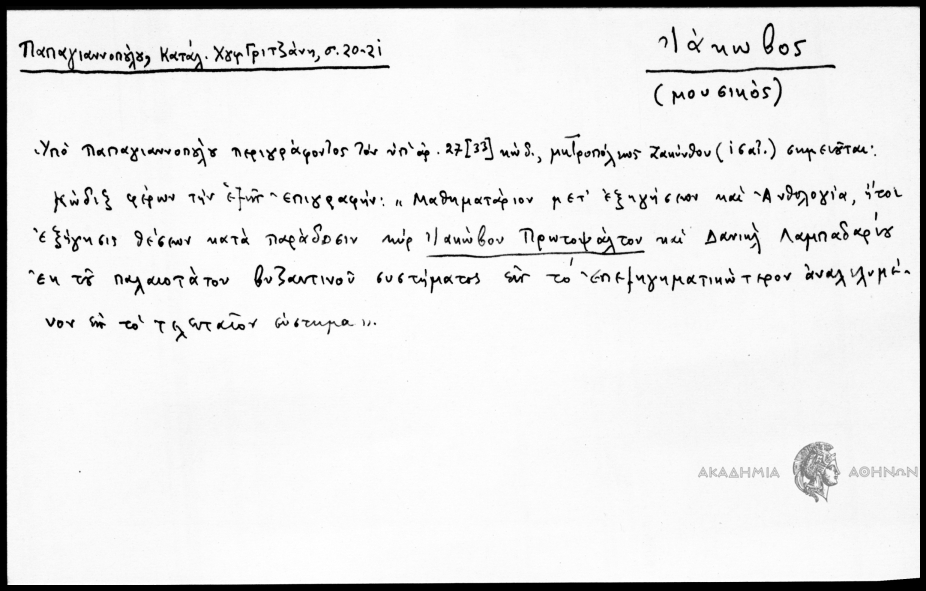 Παπαγιαννοπούλου, Κατάλ. Χγφ Γριτζάνη, σ. 20-21
Ἰάκωβος
(μουσικὸς)
Ὑπὸ Παπαγιαννοπούλου περιγράφοντος τὸν ὑπ' ἀρ. 27[33] κώδ., μητροπόλεως Ζακύνθου (ισαι.) σημειοῦται:
Κῶδιξ φέρων τὴν ἑξῆς ἐπιγραφήν: „Μαθηματάριον μετ' ἐξηγήσεων καὶ Ἀνθολογία, ἤτοι
ἐξήγησις θέσεων κατὰ παράδοσιν κὺρ Ἰακώβου Πρωτοψάλτου καὶ Δανιὴλ Λαμπαδαρίου
ἐκ τοῦ παλαιοτάτου βυζαντινοῦ συστήματος εἰς τὸ ἐπεξηγηματικώτερον ἀναλελυμέ-
νον εἰς τὸ τελευταῖον σύστημα".
ΑΚΑΔΗΜΙΑ ΑΘΗΝΩΝ